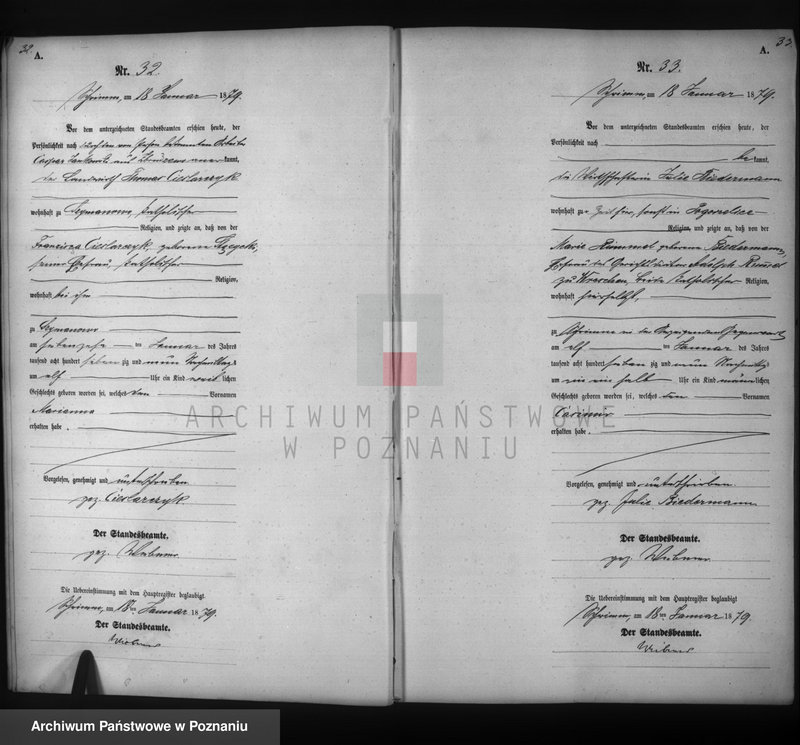 32.
A.
Nr. 32.
Schrimm, am 18 Januar 1879.
Vor dem unterzeichneten Standesbeamten erschien heute, der
Persönlichkeit nach durch den von Person bekannten
Caspar aus kannt,
der Landwirth Thomas Cieslarczyk
wohnhaft zu Szymanowo, katholischer
Religion, und zeigte an, daß von der
Franciszka Cieslarczyk, geborene
seiner Ehefrau, katholischer
Religion,
wohnhaft bei ihm
zu Szymanowo
am siebenzehn ten Januar des Jahres
tausend acht hundert sieben zig und neun Nachmittags
um elf Uhr ein Kind weib lichen
Geschlechts geboren worden sei, welches den Vornamen
Marianna
erhalten habe.
Vorgelesen, genehmigt und unterschrieben
gez. Cieslarczyk
Der Standesbeamte.
gez.
Die Uebereinstimmung mit dem Hauptregister beglaubigt
Schrimm, am 18ten Januar 1879.
Der Standesbeamte.
33.
A.
Nr. 33.
Schrimm, am 18 Januar 1879.
Vor dem unterzeichneten Standesbeamten erschien heute, der
Persönlichkeit nach
be kannt,
die Wirthschafterin Julie Biedermann
wohnhaft zur Zeit hier, sonst in
Religion, und zeigte an, daß von der
Marie geborene Biedermann,
Ehefrau des Adolph
zu Wreschen, beide katholischer Religion,
wohnhaft hierselbst,
zu Schrimm in der Anzeigenden Gegenwart
am elf ten Januar des Jahres
tausend acht hundert sieben zig und neun Nachmittags
um ein ein halb Uhr ein Kind männ lichen
Geschlechts geboren worden sei, welches den Vornamen
Casimir
erhalten habe.
Vorgelesen, genehmigt und unterschrieben
gez. Julie Biedermann
Der Standesbeamte.
gez.
Die Uebereinstimmung mit dem Hauptregister beglaubigt
Schrimm, am 18ten Januar 1879.
Der Standesbeamte.
ARCHIWUM PAŃSTWOWE
W POZNANIU
Archiwum Państwowe w Poznaniu